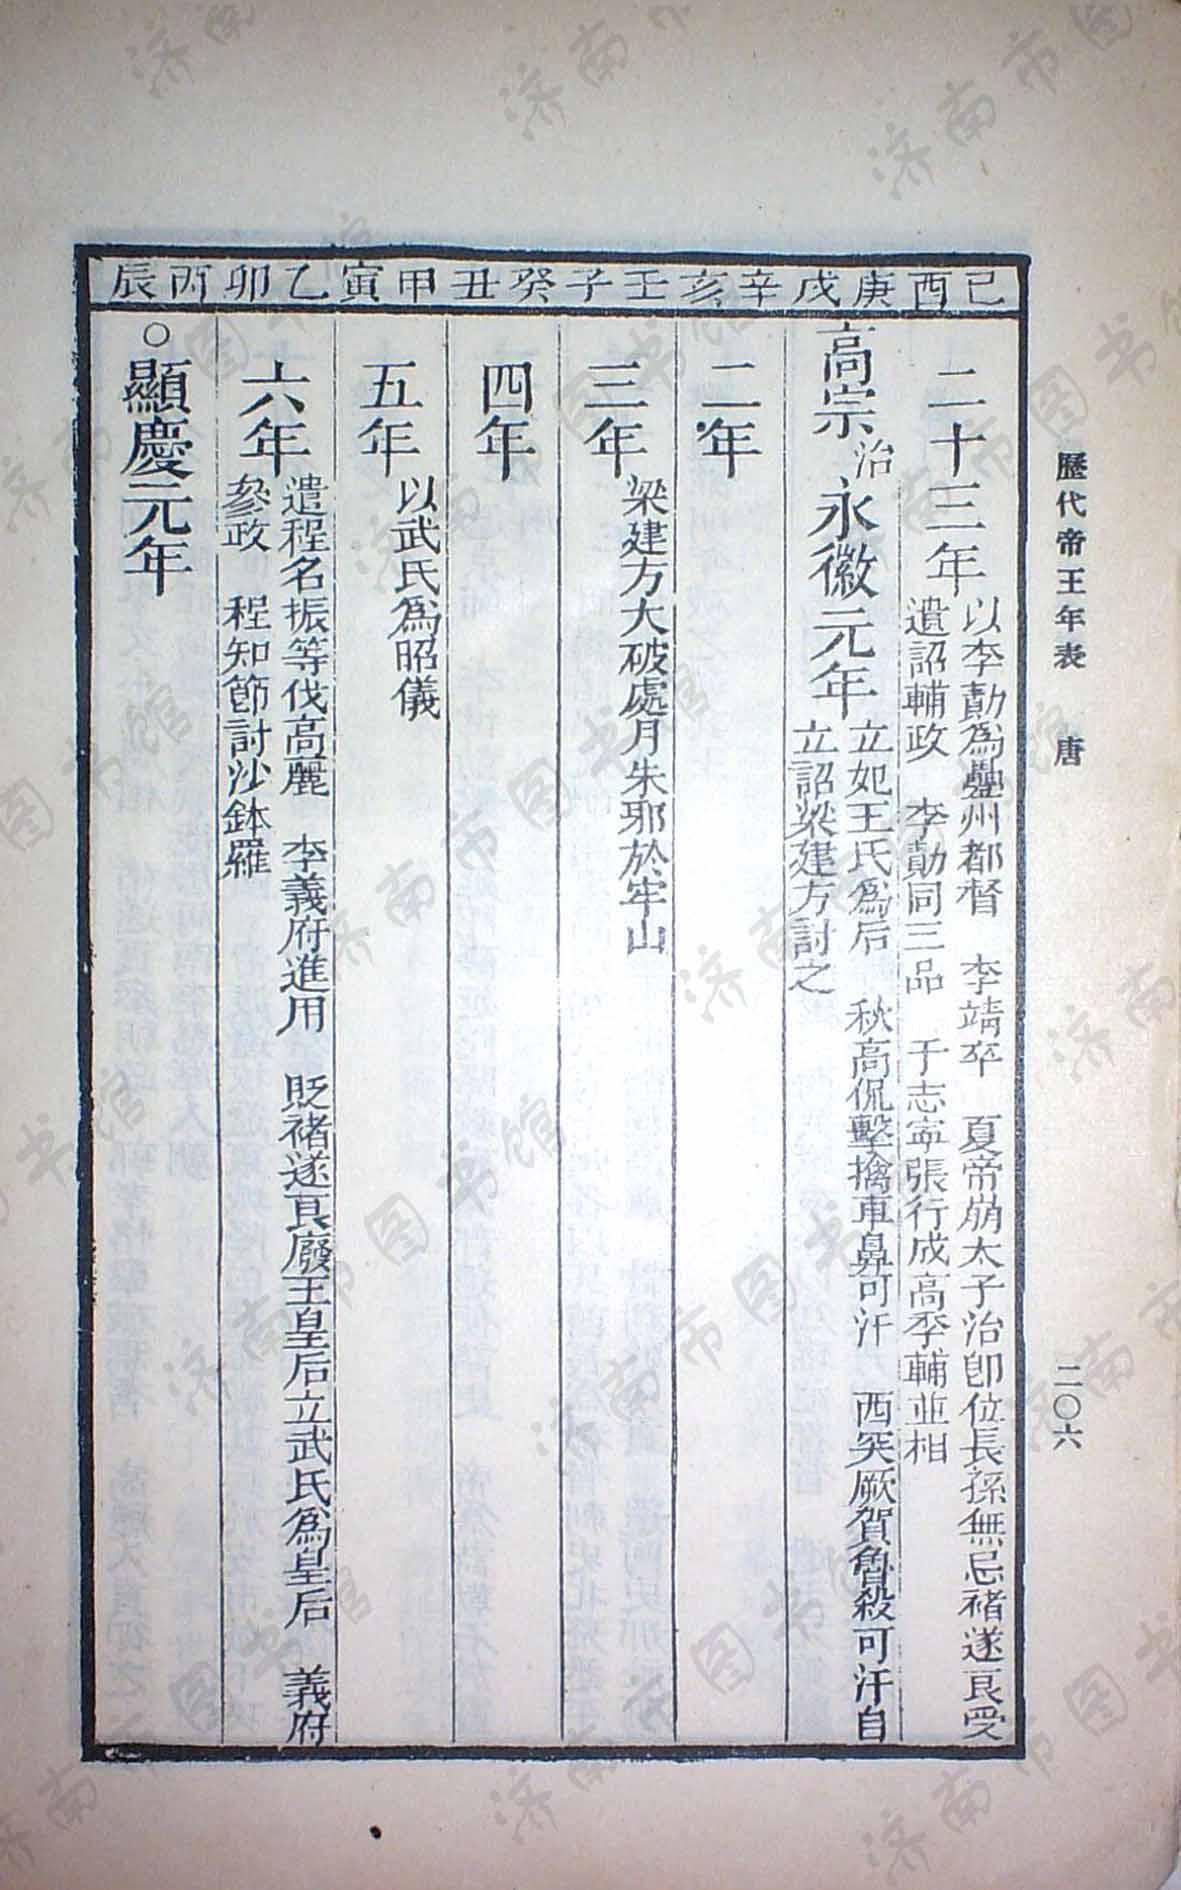 歷代帝王年表　唐　二〇六
己酉　庚戌　辛亥　壬子　癸丑　甲寅　乙卯　丙辰
二十三年
以李勣爲疊州都督　李靖卒　夏帝崩太子治卽位長孫無忌褚遂良受
遺詔輔政　李勣同三品　于志寧張行成高季輔並相
高宗治永徽元年
立妃王氏爲后　秋高侃擊擒車鼻可汗　西突厥賀魯殺可汗自
立詔梁建方討之
二年
三年
梁建方大破處月朱邪於牢山
四年
五年
以武氏爲昭儀
六年
遣程名振等伐高麗　李義府進用　貶褚遂良廢王皇后立武氏爲皇后　義府
參政　程知節討沙鉢羅
○顯慶元年
济南市图书馆